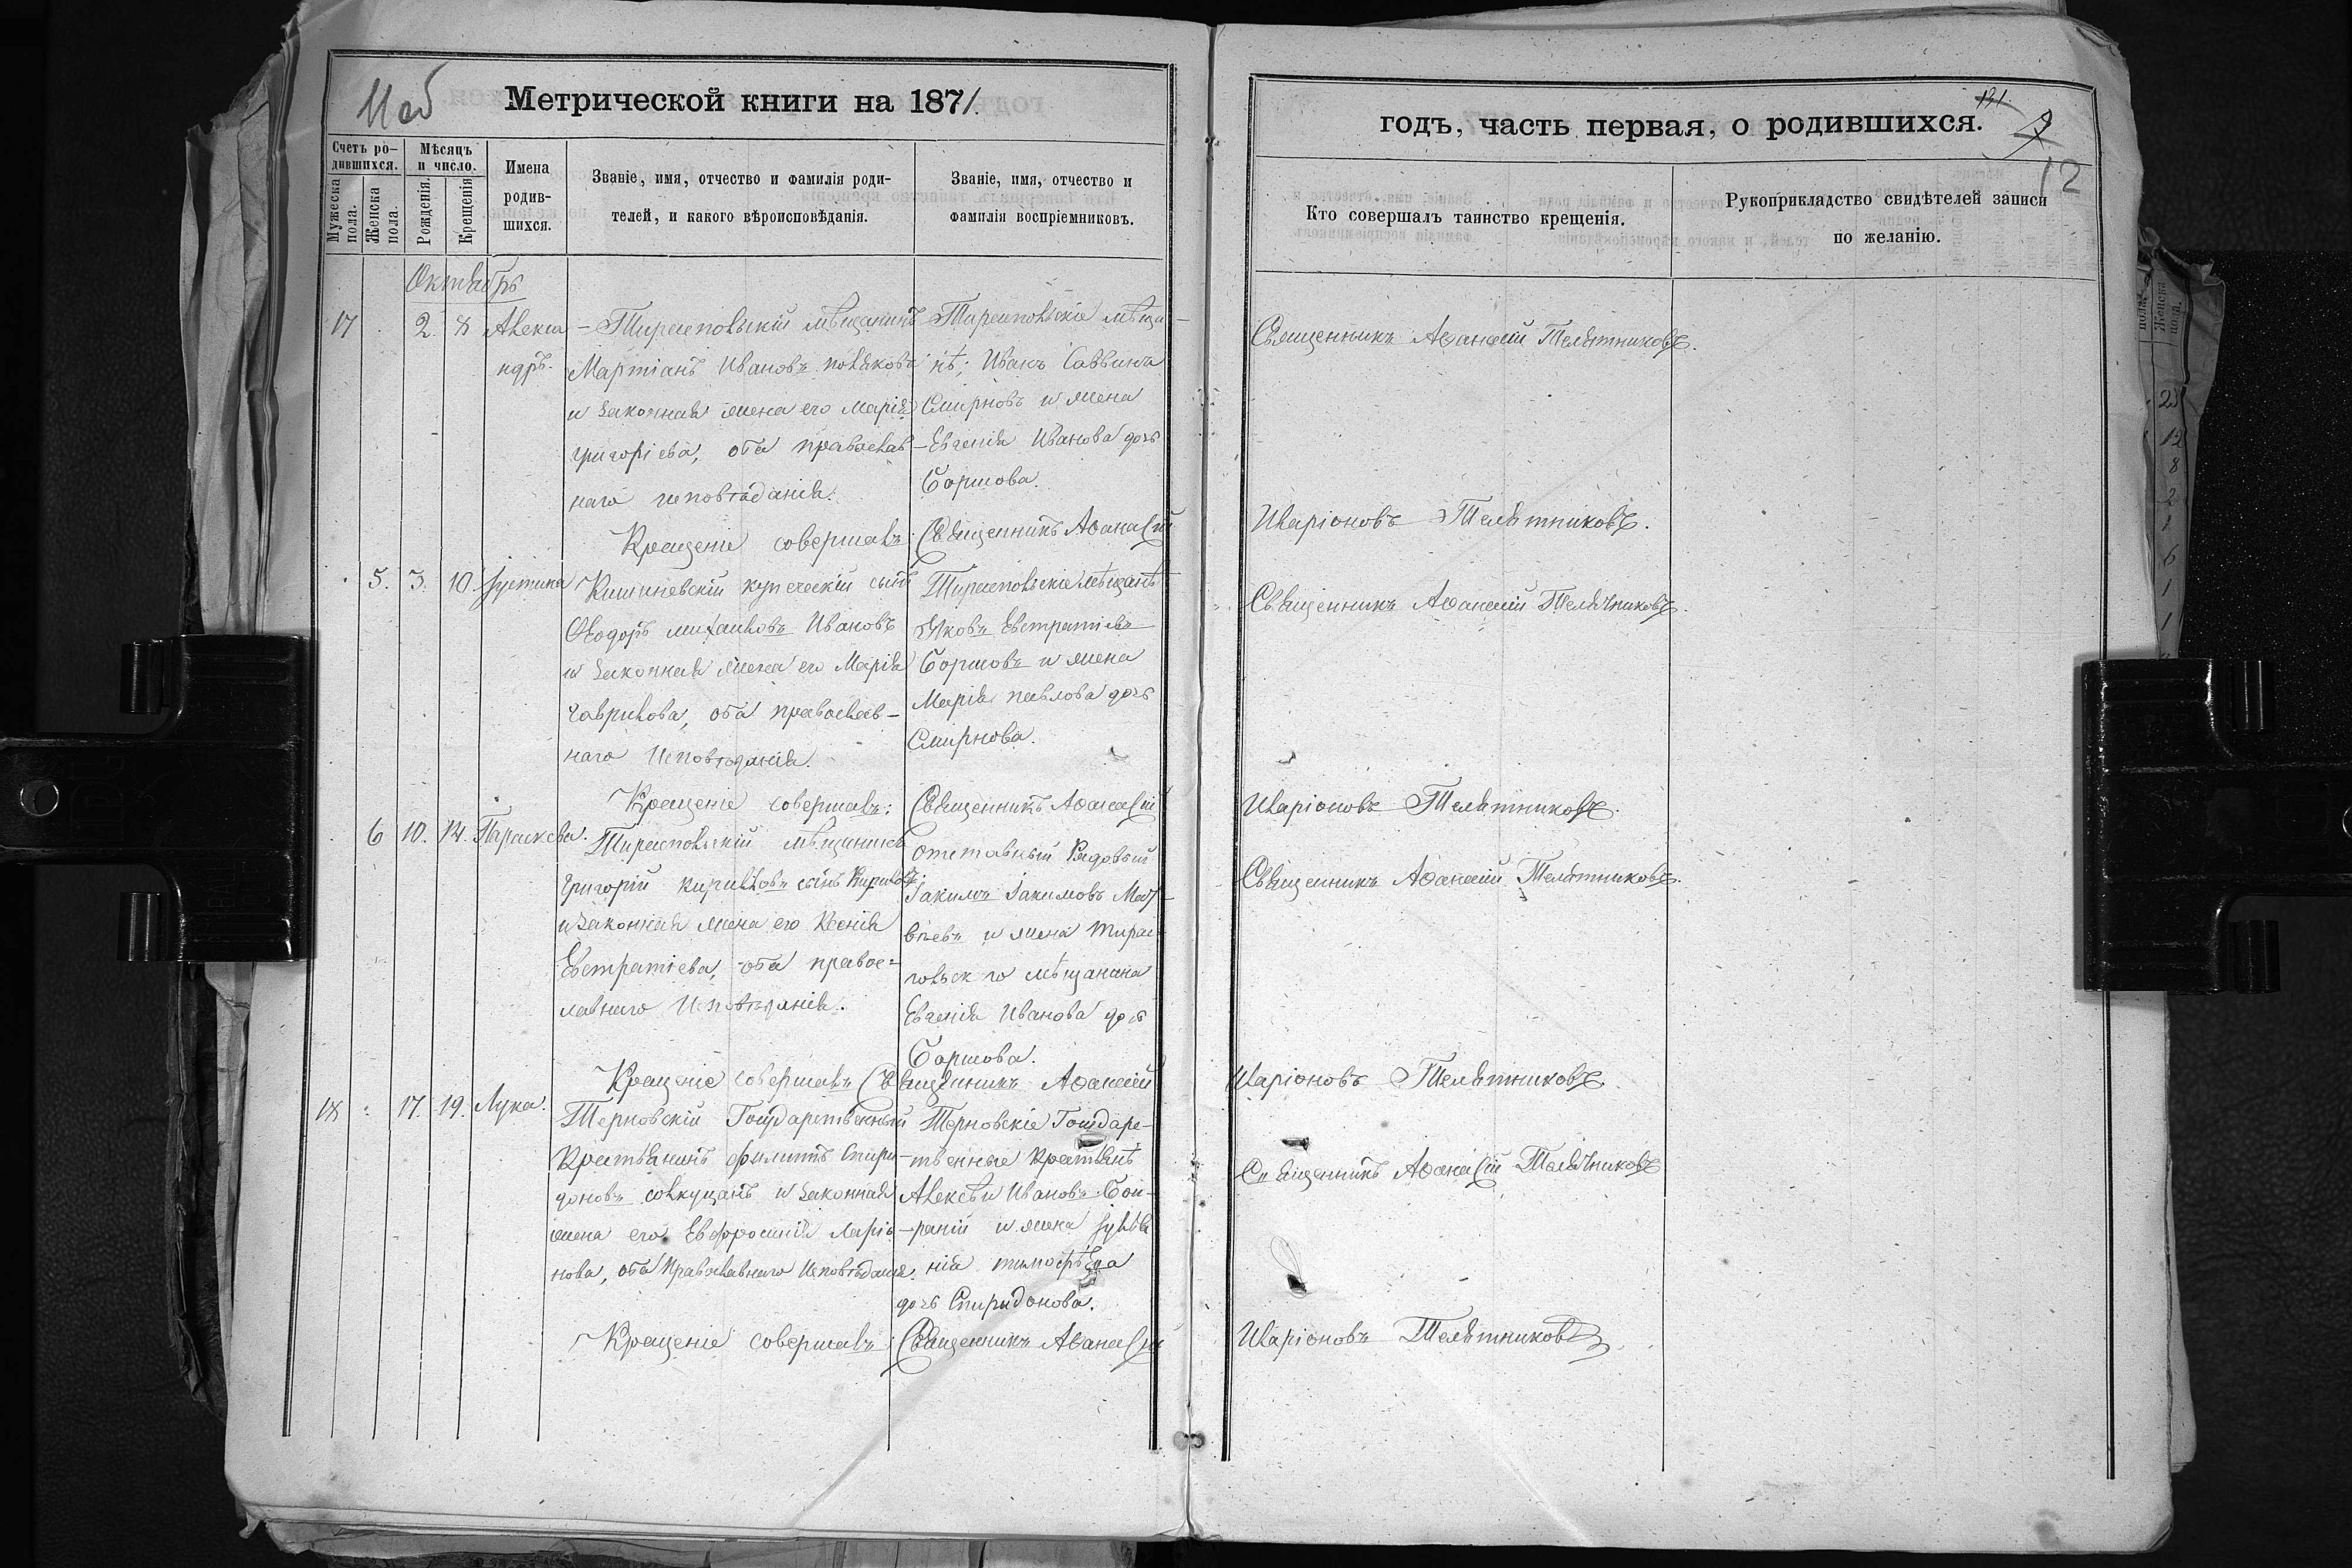 Метрической книги на 1871.
Счетъ родившихся.
Мужеска пола.
Женска пола.
Мѣсяцъ и число.
Рожденія.
Крещенія
Имена родившихся.
Званіе, имя, отчество и фамилія родителей, и какого вѣроисповѣданія.
Званіе, имя, отчество и фамилія воспріемниковъ.
Октябрь
17 2. 8 Алекса
ндръ.
Тираспольскій мѣщанинъ
Мартіанъ Ивановъ поляковъ
и законная жена его Марія
григоріева, оба православ-
наго исповѣданія.
Тираспольскіе мѣща-
нѣ; Иванъ Саввинъ
Смирновъ и жена
Евгенія Иванова дочь
Боршова.
Крещеніе совершалъ: Священникъ Аѳанасій
5. 3. 10. Іустина
Кишиневскій купеческій сынъ
Ѳеодоръ михаиловъ Ивановъ
и законная жена его Марія
гаврилова, оба православ-
наго Исповѣданія.
Тираспольскіе мѣщанѣ
Яковъ Евстратіевъ
Боршовъ и жена
Марія павлова дочь
Смирнова.
Крещеніе совершалъ: Священникъ Аѳанасій
6 10. 14. Параскева.
Тираспольскій мѣщанинъ
григорій кириловъ сынъ Кириловъ
и законная жена его Ксенія
Евстратіева, оба правос-
лавнаго Исповѣданія.
отставный Рядовый
Іакимъ Іакимовъ
и жена Тирас-
мѣщанина
Евгенія Иванова дочь
Боршова.
Крещеніе совершалъ Священникъ Аѳанасій
18 17. 19. Лука.
Терновскій Государственный
Крестьянинъ филиппъ Спири-
доновъ и законная
жена его Евфросинія Ларіо-
нова, оба Православнаго Исповѣданія.
Терновскіе Государс-
твенные Крестьянѣ
Алексѣй Ивановъ
и жена Іуліа
нія тимофѣева
дочь Спиридонова.
Крещеніе совершалъ: Священникъ Аѳанасій
годъ, часть первая, о родившихся.
131
7
12
Кто совершалъ таинство крещенія.
Рукоприкладство свидѣтелей записи по желанію.
Священникъ Аѳанасій Телятниковъ.
Иларіоновъ Телятниковъ.
Священникъ Аѳанасій Телятниковъ.
Иларіоновъ Телятниковъ.
Священникъ Аѳанасій Телятниковъ.
Иларіоновъ Телятниковъ.
Священникъ Аѳанасій Телятниковъ
Иларіоновъ Телятниковъ